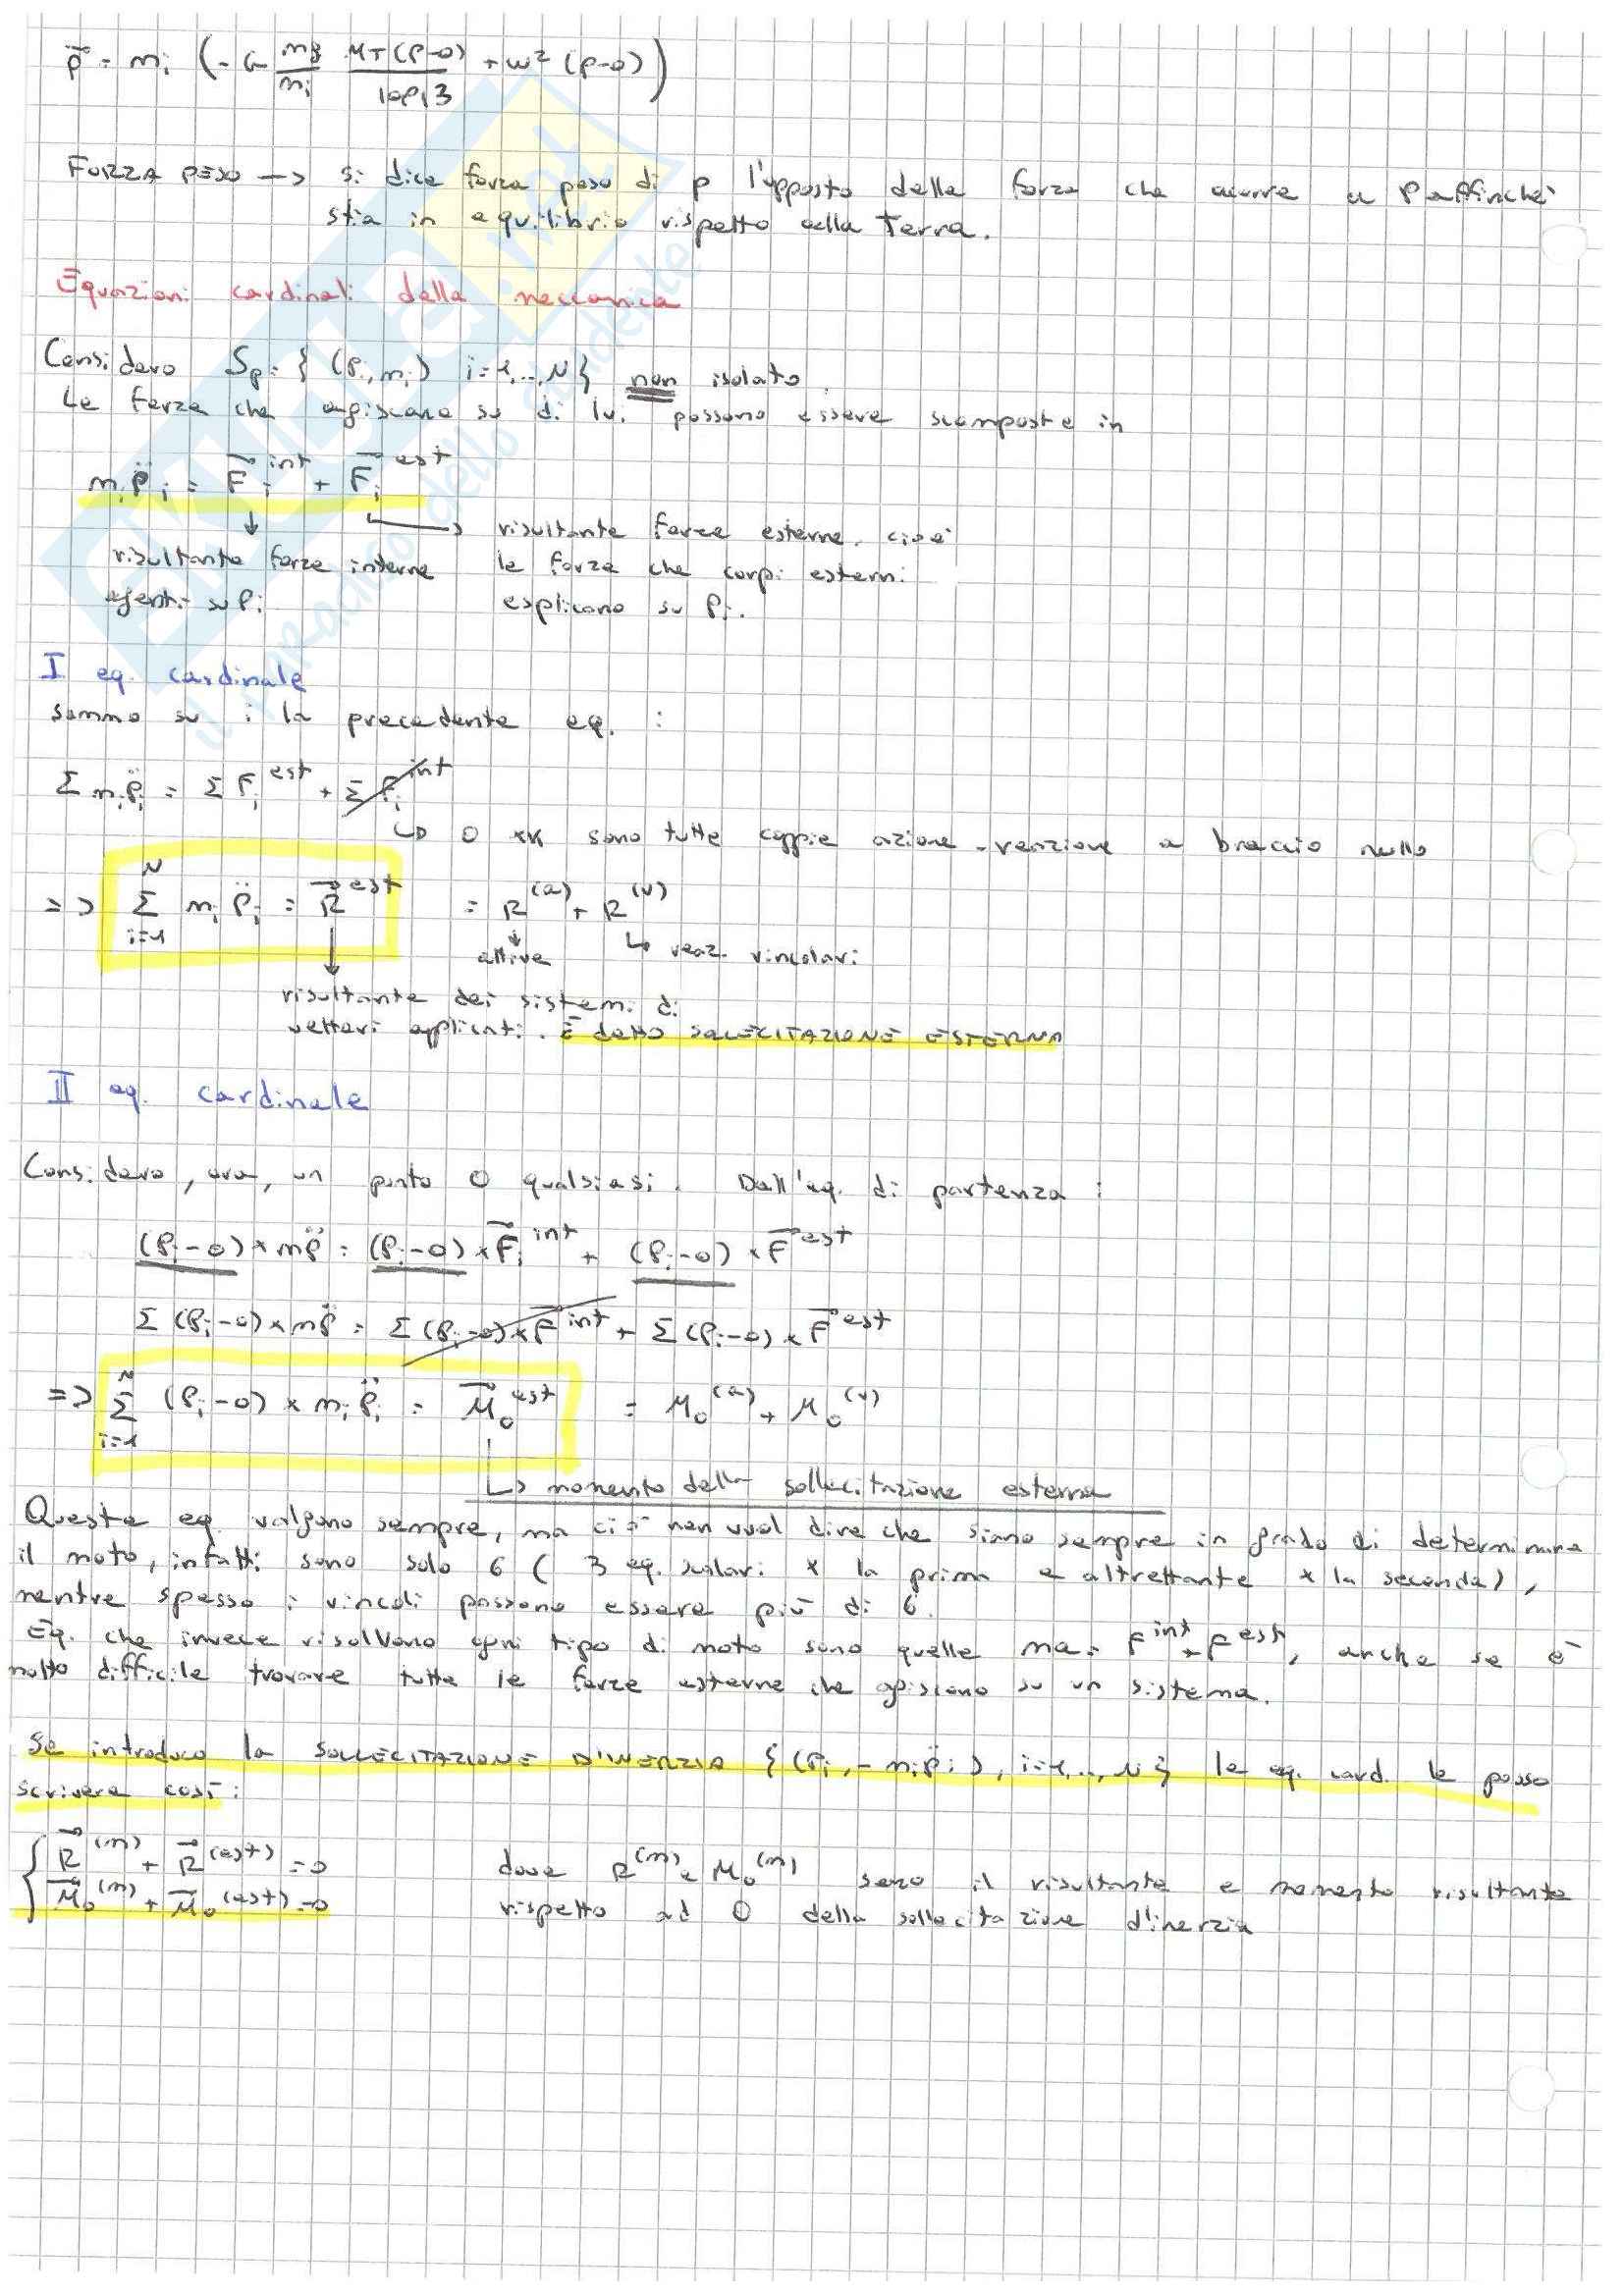 p⃗ = mᵢ (-G m_g/mᵢ M_T(P-O)/|OP|³ + ω²(P-O))
FORZA PESO —> si dice forza peso di P l'opposto della forza che occorre a P affinché
stia in equilibrio rispetto alla Terra.
Equazioni cardinali della meccanica
Considero Sp = { (Pᵢ, mᵢ) i=1,..,N} non isolato.
Le forze che agiscono su di lui possono essere scomposte in
mᵢP̈ᵢ = F⃗ᵢ^int + F⃗ᵢ^est
risultante forze interne agenti su Pᵢ
risultante forze esterne, cioè
le forze che corpi esterni
esplicano su Pᵢ.
I eq. cardinale
sommo su i la precedente eq. :
Σ mᵢP̈ᵢ = Σ Fᵢ^est + Σ Fᵢ^int
↳ 0 xk sono tutte coppie azione-reazione a braccio nullo
=> Σ_{i=1}^N mᵢ P̈ᵢ = R⃗^est = R^(a) + R^(v)
attive ↳ reaz. vincolari
risultante dei sistemi di
vettori applicati. È detto SOLLECITAZIONE ESTERNA
II eq. cardinale
Considero, ora, un punto O qualsiasi. Dall'eq. di partenza :
(Pᵢ-O) × mP̈ = (Pᵢ-O) × F⃗ᵢ^int + (Pᵢ-O) × F⃗^est
Σ (Pᵢ-O) × mP̈ = Σ (Pᵢ-O) × F⃗^int + Σ (Pᵢ-O) × F⃗^est
=> Σ_{i=1}^N (Pᵢ-O) × mᵢP̈ᵢ = M⃗₀^est = M₀^(a) + M₀^(v)
↳ momento della sollecitazione esterna
Queste eq. valgono sempre, ma ciò non vuol dire che siano sempre in grado di determinare
il moto, infatti sono solo 6 ( 3 eq. scalari x la prima e altrettante x la seconda),
mentre spesso i vincoli possono essere più di 6.
Eq. che invece risolvono ogni tipo di moto sono quelle ma = F^int + F^est, anche se è
molto difficile trovare tutte le forze esterne che agiscono su un sistema.
Se introduco la SOLLECITAZIONE D'INERZIA {(Pᵢ, -mᵢP̈ᵢ), i=1,..,N} le eq. card. le posso
scrivere così :
{ R⃗^(m) + R⃗^(est) = 0
M⃗₀^(m) + M⃗₀^(est) = 0
dove R^(m) e M₀^(m) sono il risultante e momento risultante
rispetto ad O della sollecitazione d'inerzia